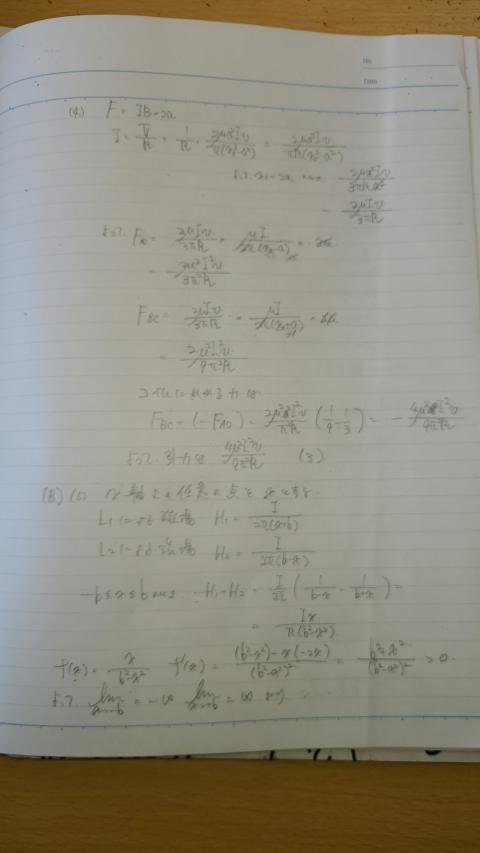 No.
Date
(4) F = IB・2a
I = V/R = 1/R · 2μa²Iv/π(x₀²-a²) = 2μa²Iv/πR(x₀²-a²)
2μa²Iv/3πRa²
= 2μIv/3πR
よって F_AD = 2μIv/3πR × μI/2π(x₀-a) × 2a
= 2μ²I²v/3π²R
F_BC = 2μIv/3πR × μI/2π(x₀+a) × 2a
= 2μ²I²v/9π²R
コイルにかかる力は
F_BC = (-F_AD) = 2μ²I²v/π²R (1/9 - 1/3) = - 4μ²I²v/9π²R
よって、引力は 4μ²I²v/9π²R (3)
(B) (5) x軸上の任意の点をxとする
L₁による磁場 H₁ = I/2π(x+b)
L₂による磁場 H₂ = I/2π(b-x)
-b≤x≤b -H₁+H₂ = I/2π (1/b-x - 1/b+x) =
= Ix/π(b²-x²)
f(x) = x/b²-x² f'(x) = (b²-x²)-x(-2x)/(b²-x²)² = b²+x²/(b²-x²)² > 0
よって lim x→-b = -∞ lim x→b = ∞ より